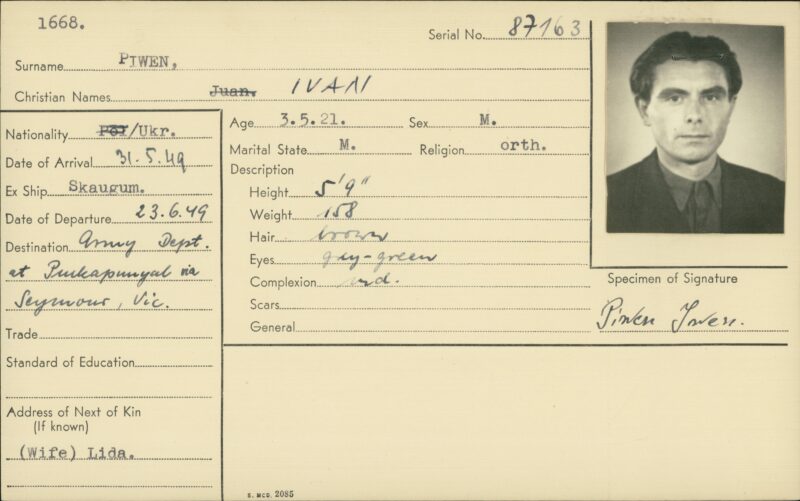 1668.
Serial No. 87163
Surname PIWEN,
Christian Names Juan. IVAN
Nationality Pol/Ukr.
Date of Arrival 31.5.49
Ex Ship Skaugum.
Date of Departure 23.6.49
Destination Army Dept.
at Puckapunyal via
Seymour, Vic.
Trade
Standard of Education
Address of Next of Kin
(If known)
(Wife) Lida.
Age 3.5.21. Sex M.
Marital State M. Religion orth.
Description
Height 5'9"
Weight 158
Hair brown
Eyes grey-green
Complexion md.
Scars
General
Specimen of Signature
Piwen Iwen.
S. MCD. 2085